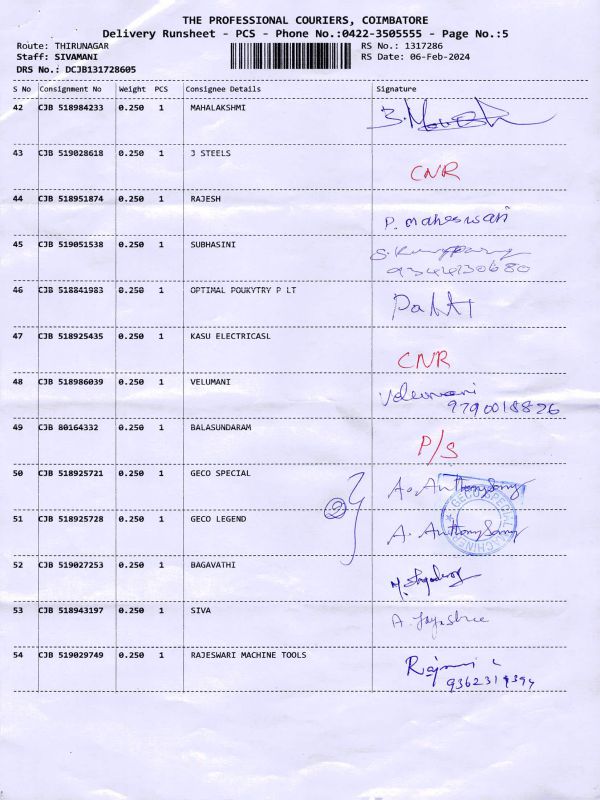 THE PROFESSIONAL COURIERS, COIMBATORE
Delivery Runsheet - PCS - Phone No.:0422-3505555 - Page No.:5
Route: THIRUNAGAR RS No.: 1317286
Staff: SIVAMANI RS Date: 06-Feb-2024
DRS No.: DCJB131728605
S No Consignment No Weight PCS Consignee Details Signature
42 CJB 518984233 0.250 1 MAHALAKSHMI
43 CJB 519028618 0.250 1 J STEELS CNR
44 CJB 518951874 0.250 1 RAJESH P. maheswari
45 CJB 519051538 0.250 1 SUBHASINI
9344130680
46 CJB 518841983 0.250 1 OPTIMAL POUKYTRY P LT
47 CJB 518925435 0.250 1 KASU ELECTRICASL CNR
48 CJB 518986039 0.250 1 VELUMANI Velumani
9790018826
49 CJB 80164332 0.250 1 BALASUNDARAM P/S
50 CJB 518925721 0.250 1 GECO SPECIAL A. Anthonysamy
51 CJB 518925728 0.250 1 GECO LEGEND A. Anthonysamy
52 CJB 519027253 0.250 1 BAGAVATHI
53 CJB 518943197 0.250 1 SIVA A. Jayashree
54 CJB 519029749 0.250 1 RAJESWARI MACHINE TOOLS